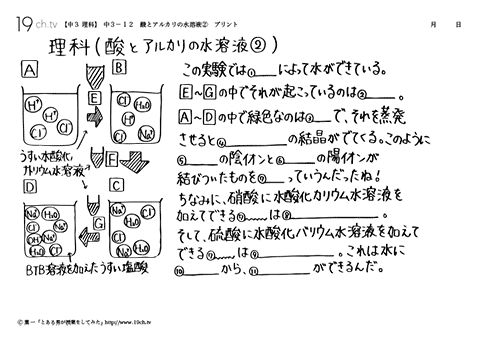 19ch.tv 【中3 理科】 中3-12 酸とアルカリの水溶液② プリント 月 日
理科(酸とアルカリの水溶液②)
A B
E
H⁺ H⁺ Cl⁻ Cl⁻
Cl⁻ H₂O Cl⁻ Na⁺
うすい水酸化
ナトリウム水溶液
F
D C
G
Na⁺ H₂O Cl⁻ Na⁺ OH⁻ Na⁺ H₂O H₂O
Na⁺ Cl⁻ H₂O Cl⁻ Na⁺ H₂O
BTB溶液を加えたうすい塩酸
この実験では①__によって水ができている。
E~Gの中でそれが起こっているのは②__。
A~Dの中で緑色なのは③__で、それを蒸発
させると④__の結晶がでてくる。このように
⑤__の陰イオンと⑥__の陽イオンが
結びついたものを⑦__っていうんだったね!
ちなみに、硝酸に水酸化カリウム水溶液を
加えてできる⑦は⑧__。
そして、硫酸に水酸化バリウム水溶液を加えて
できる⑦は⑨__。これは水に
⑩__から、⑪__ができるんだ。
© 葉一「とある男が授業をしてみた」http://www.19ch.tv